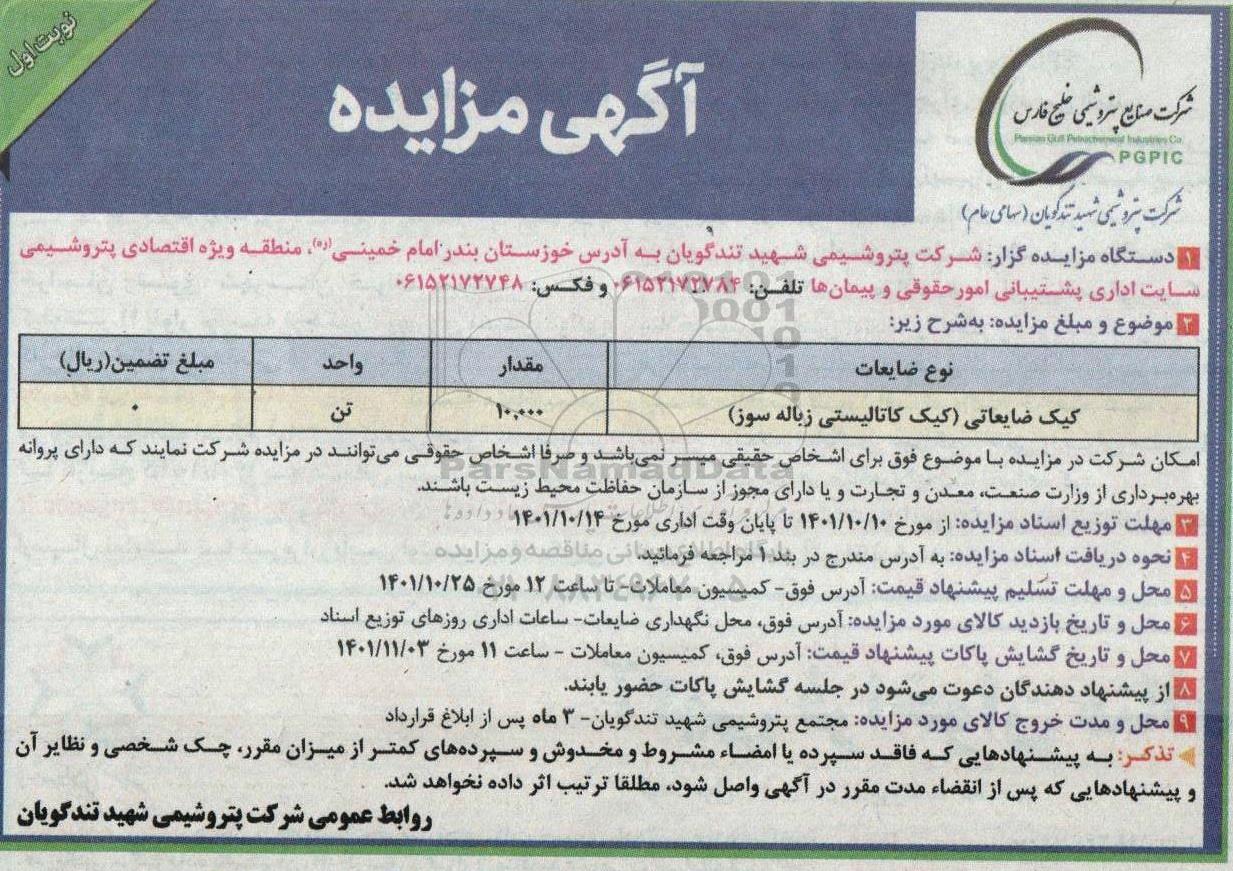 نوبت اول
آگهی مزایده
شرکت صنایع پتروشیمی خلیج فارس
Persian Gulf Petrochemical Industries Co.
PGPIC
شرکت پتروشیمی شهید تندگویان (سهامی عام)
۱ دستگاه مزایده گزار: شرکت پتروشیمی شهید تندگویان به آدرس خوزستان بندر امام خمینی(ره)، منطقه ویژه اقتصادی پتروشیمی
سایت اداری پشتیبانی امورحقوقی و پیمان‌ها تلفن: ۰۶۱۵۲۱۷۲۷۸۴ و فکس: ۰۶۱۵۲۱۷۲۷۴۸
۲ موضوع و مبلغ مزایده: به‌شرح زیر:
نوع ضایعات مقدار واحد مبلغ تضمین(ریال)
کیک ضایعاتی (کیک کاتالیستی زباله سوز) ۱۰,۰۰۰ تن ۰
امکان شرکت در مزایده با موضوع فوق برای اشخاص حقیقی میسر نمی‌باشد و صرفا اشخاص حقوقی می‌توانند در مزایده شرکت نمایند که دارای پروانه
بهره‌برداری از وزارت صنعت، معدن و تجارت و یا دارای مجوز از سازمان حفاظت محیط زیست باشند.
۳ مهلت توزیع اسناد مزایده: از مورخ ۱۴۰۱/۱۰/۱۰ تا پایان وقت اداری مورخ ۱۴۰۱/۱۰/۱۴
۴ نحوه دریافت اسناد مزایده: به آدرس مندرج در بند ۱ مراجعه فرمائید.
۵ محل و مهلت تسلیم پیشنهاد قیمت: آدرس فوق- کمیسیون معاملات- تا ساعت ۱۲ مورخ ۱۴۰۱/۱۰/۲۵
۶ محل و تاریخ بازدید کالای مورد مزایده: آدرس فوق، محل نگهداری ضایعات- ساعات اداری روزهای توزیع اسناد
۷ محل و تاریخ گشایش پاکات پیشنهاد قیمت: آدرس فوق، کمیسیون معاملات - ساعت ۱۱ مورخ ۱۴۰۱/۱۱/۰۳
۸ از پیشنهاد دهندگان دعوت می‌شود در جلسه گشایش پاکات حضور یابند.
۹ محل و مدت خروج کالای مورد مزایده: مجتمع پتروشیمی شهید تندگویان- ۳ ماه پس از ابلاغ قرارداد
تذکر: به پیشنهادهایی که فاقد سپرده یا امضاء مشروط و مخدوش و سپرده‌های کمتر از میزان مقرر، چک شخصی و نظایر آن
و پیشنهادهایی که پس از انقضاء مدت مقرر در آگهی واصل شود، مطلقا ترتیب اثر داده نخواهد شد.
روابط عمومی شرکت پتروشیمی شهید تندگویان
ParsNamadData